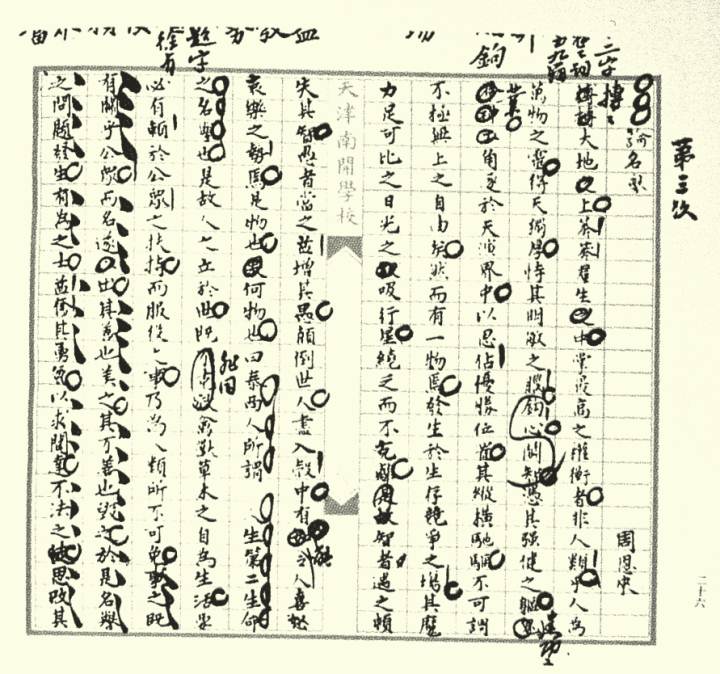 第三次
論名譽
周恩來
摶摶大地之上莽莽羣生之中掌最高之權衡者非人類乎人為
萬物之靈得天獨厚恃其明敏之腦鉤心鬭智憑其強健之軀
角逐於天演界中以思佔優勝位置其縱橫馳騁不可謂
不極無上之自由矣然而有一物焉發生於生存競爭之場其魔
力足可比之日光之吸行星繞之而不克離是故智者遇之頓
天津南開學校
失其智愚者當之益增其愚顛倒世人盡入彀中有能令人喜怒
哀樂之勢焉是物也果何物也曰泰西人所謂生第二生命
之名譽也是故人之立於世既非同禽獸草木之自為生活
必有賴於公眾之扶持而服從之事乃為人類所不可免之既
有關乎公眾而名遂出其善也美之其不善也毀之於是名譽
之問題發生有為之士益奮其勇氣以求聞達不法之徒思改其
二十六